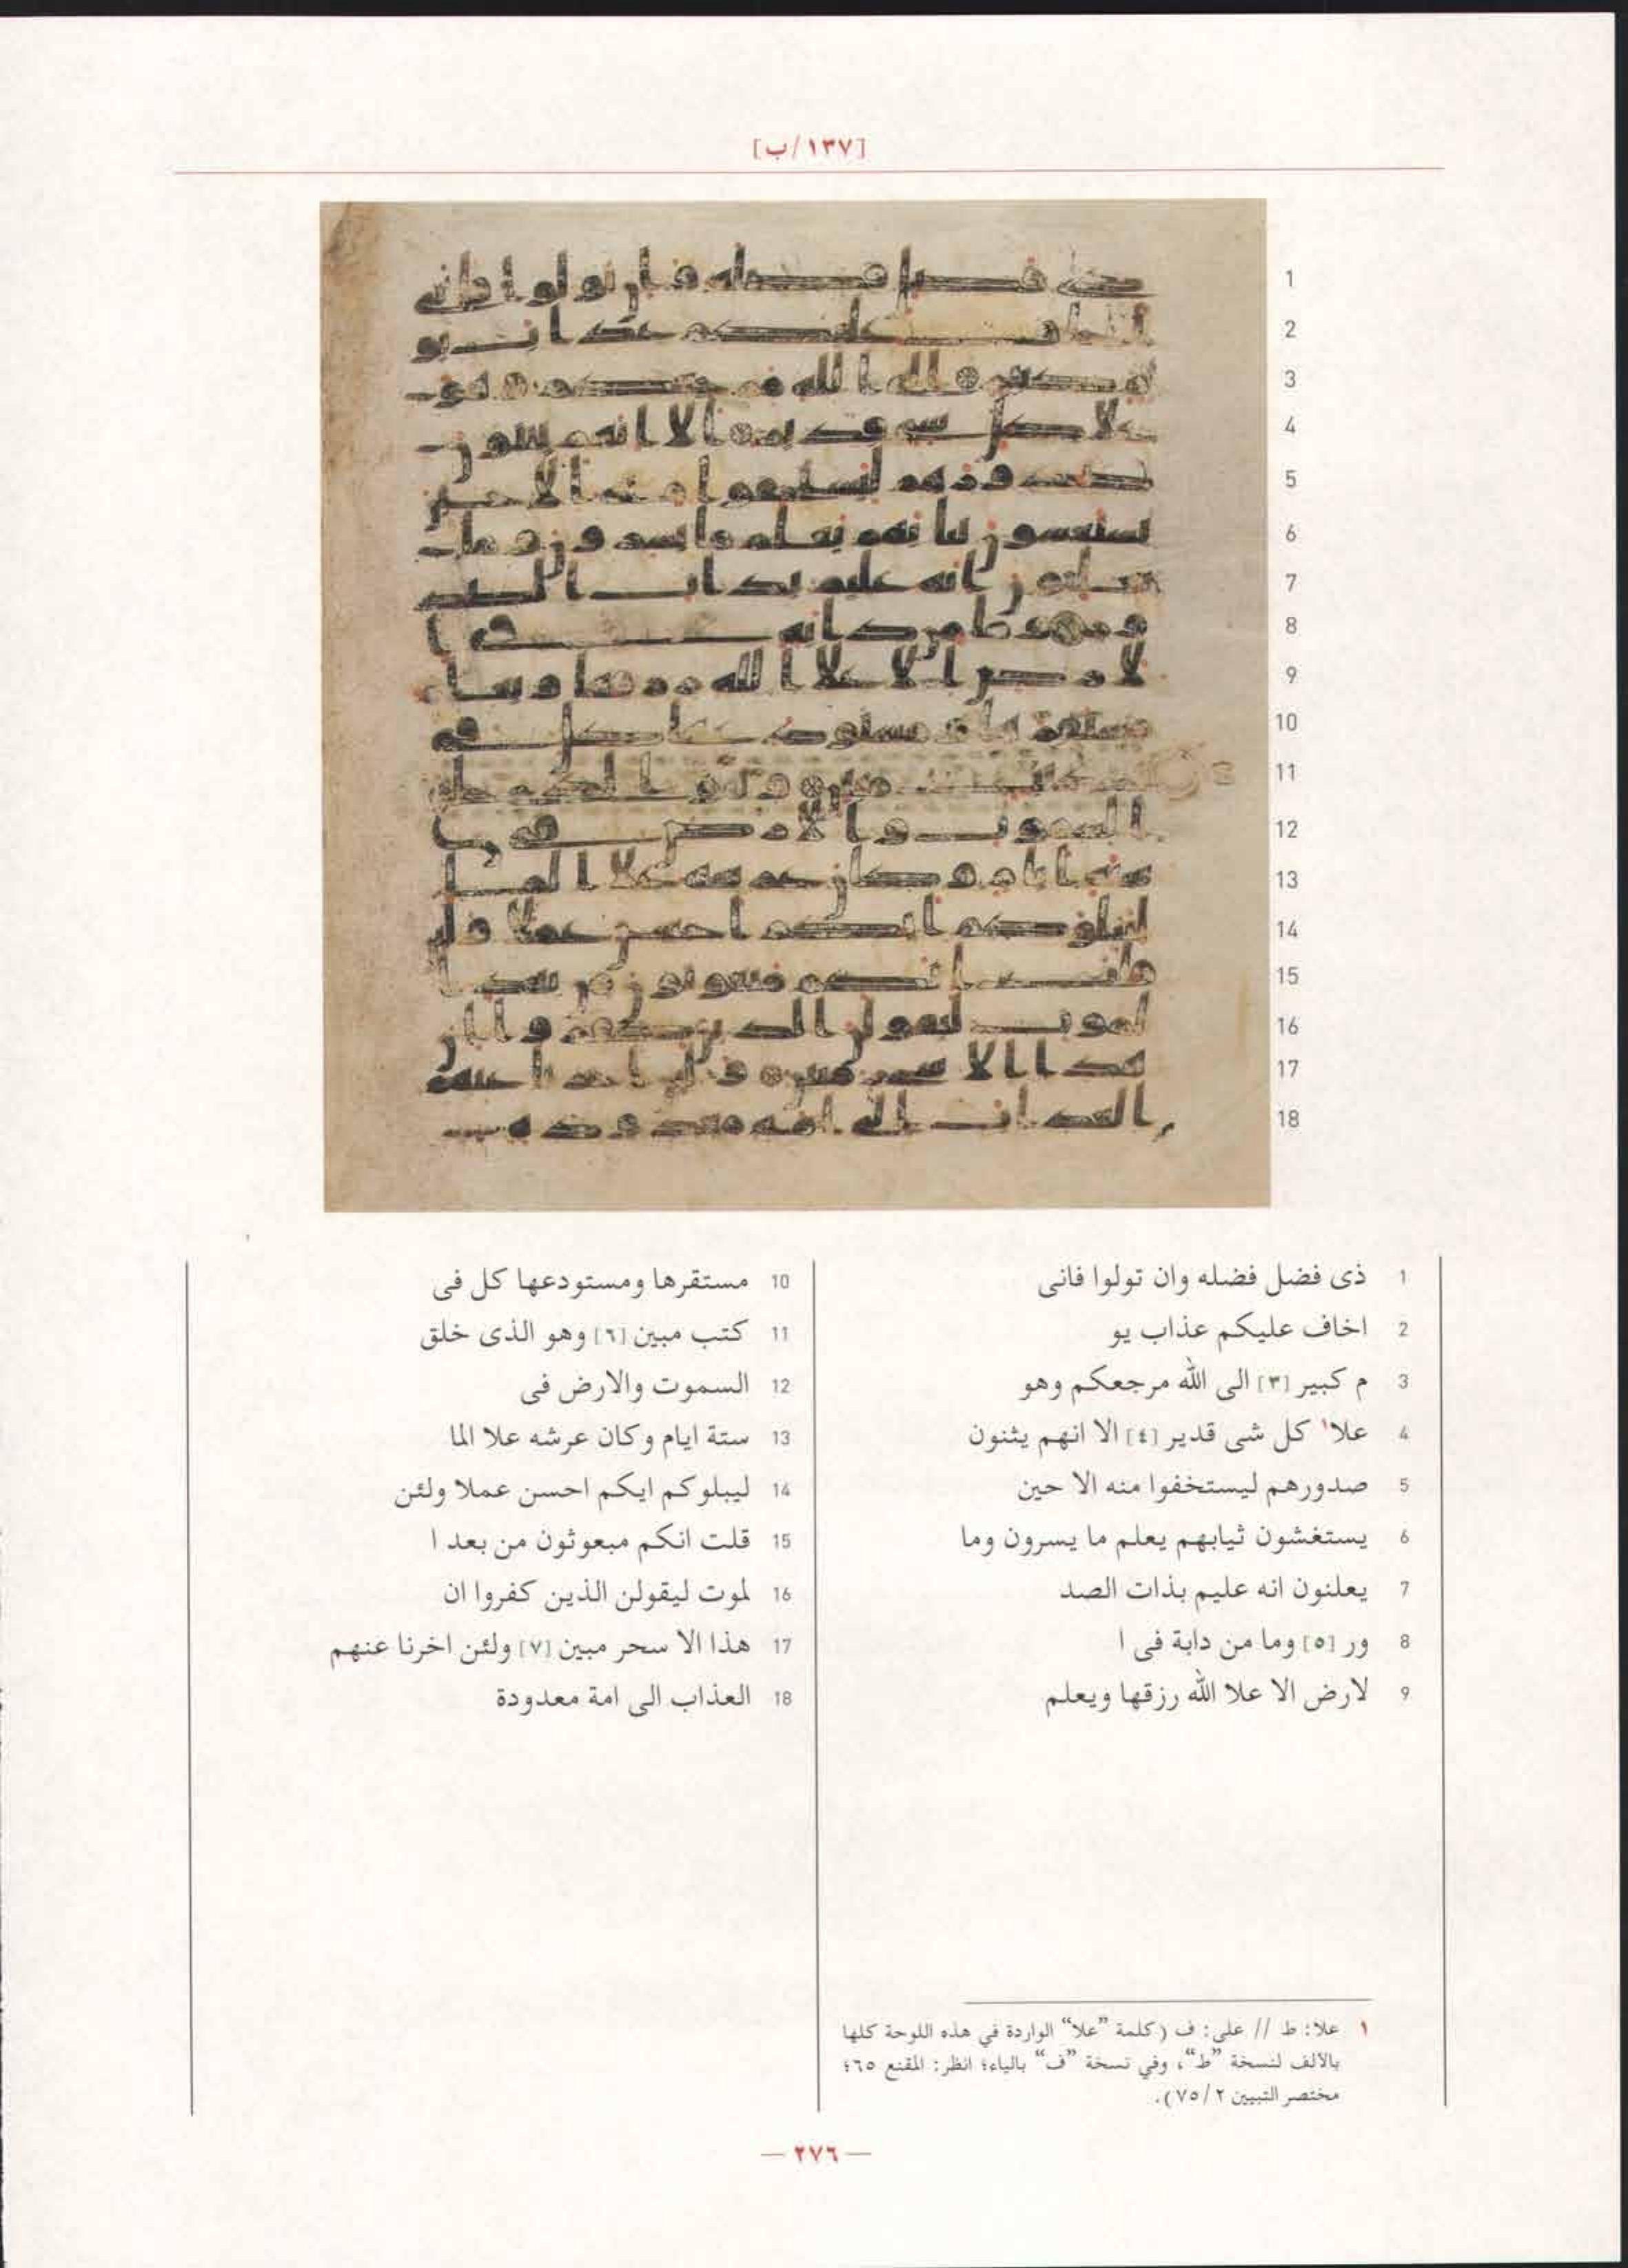 [١٣٧/ب]
1 ذى فضل فضله وان تولوا فانى
2 اخاف عليكم عذاب يو
3 م كبير [٣] الى الله مرجعكم وهو
4 علا١ كل شى قدير [٤] الا انهم يثنون
5 صدورهم ليستخفوا منه الا حين
6 يستغشون ثيابهم يعلم ما يسرون وما
7 يعلنون انه عليم بذات الصد
8 ور [٥] وما من دابة فى ا
9 لارض الا علا الله رزقها ويعلم
10 مستقرها ومستودعها كل فى
11 كتب مبين [٦] وهو الذى خلق
12 السموت والارض فى
13 ستة ايام وكان عرشه علا الما
14 ليبلوكم ايكم احسن عملا ولئن
15 قلت انكم مبعوثون من بعد ا
16 لموت ليقولن الذين كفروا ان
17 هذا الا سحر مبين [٧] ولئن اخرنا عنهم
18 العذاب الى امة معدودة
١ علا: ط // على: ف (كلمة "علا" الواردة في هذه اللوحة كلها
بالألف لنسخة "ط"، وفي نسخة "ف" بالياء؛ انظر: المقنع ٦٥؛
مختصر التبيين ٢/ ٧٥).
— ٢٧٦ —